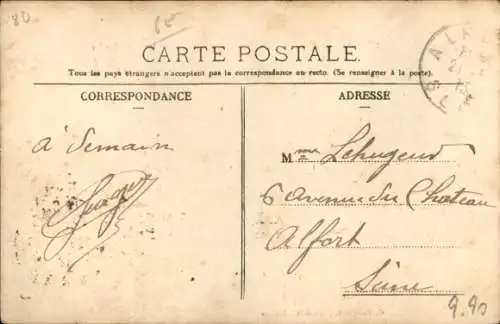 80
65
CARTE POSTALE.
Tous les pays étrangers n'acceptent pas la correspondance au recto. (Se renseigner à la poste).
CORRESPONDANCE
ADRESSE
à Demain
Mme Lehugeur
6 avenue du Chateau
Alfort
Seine
9.90